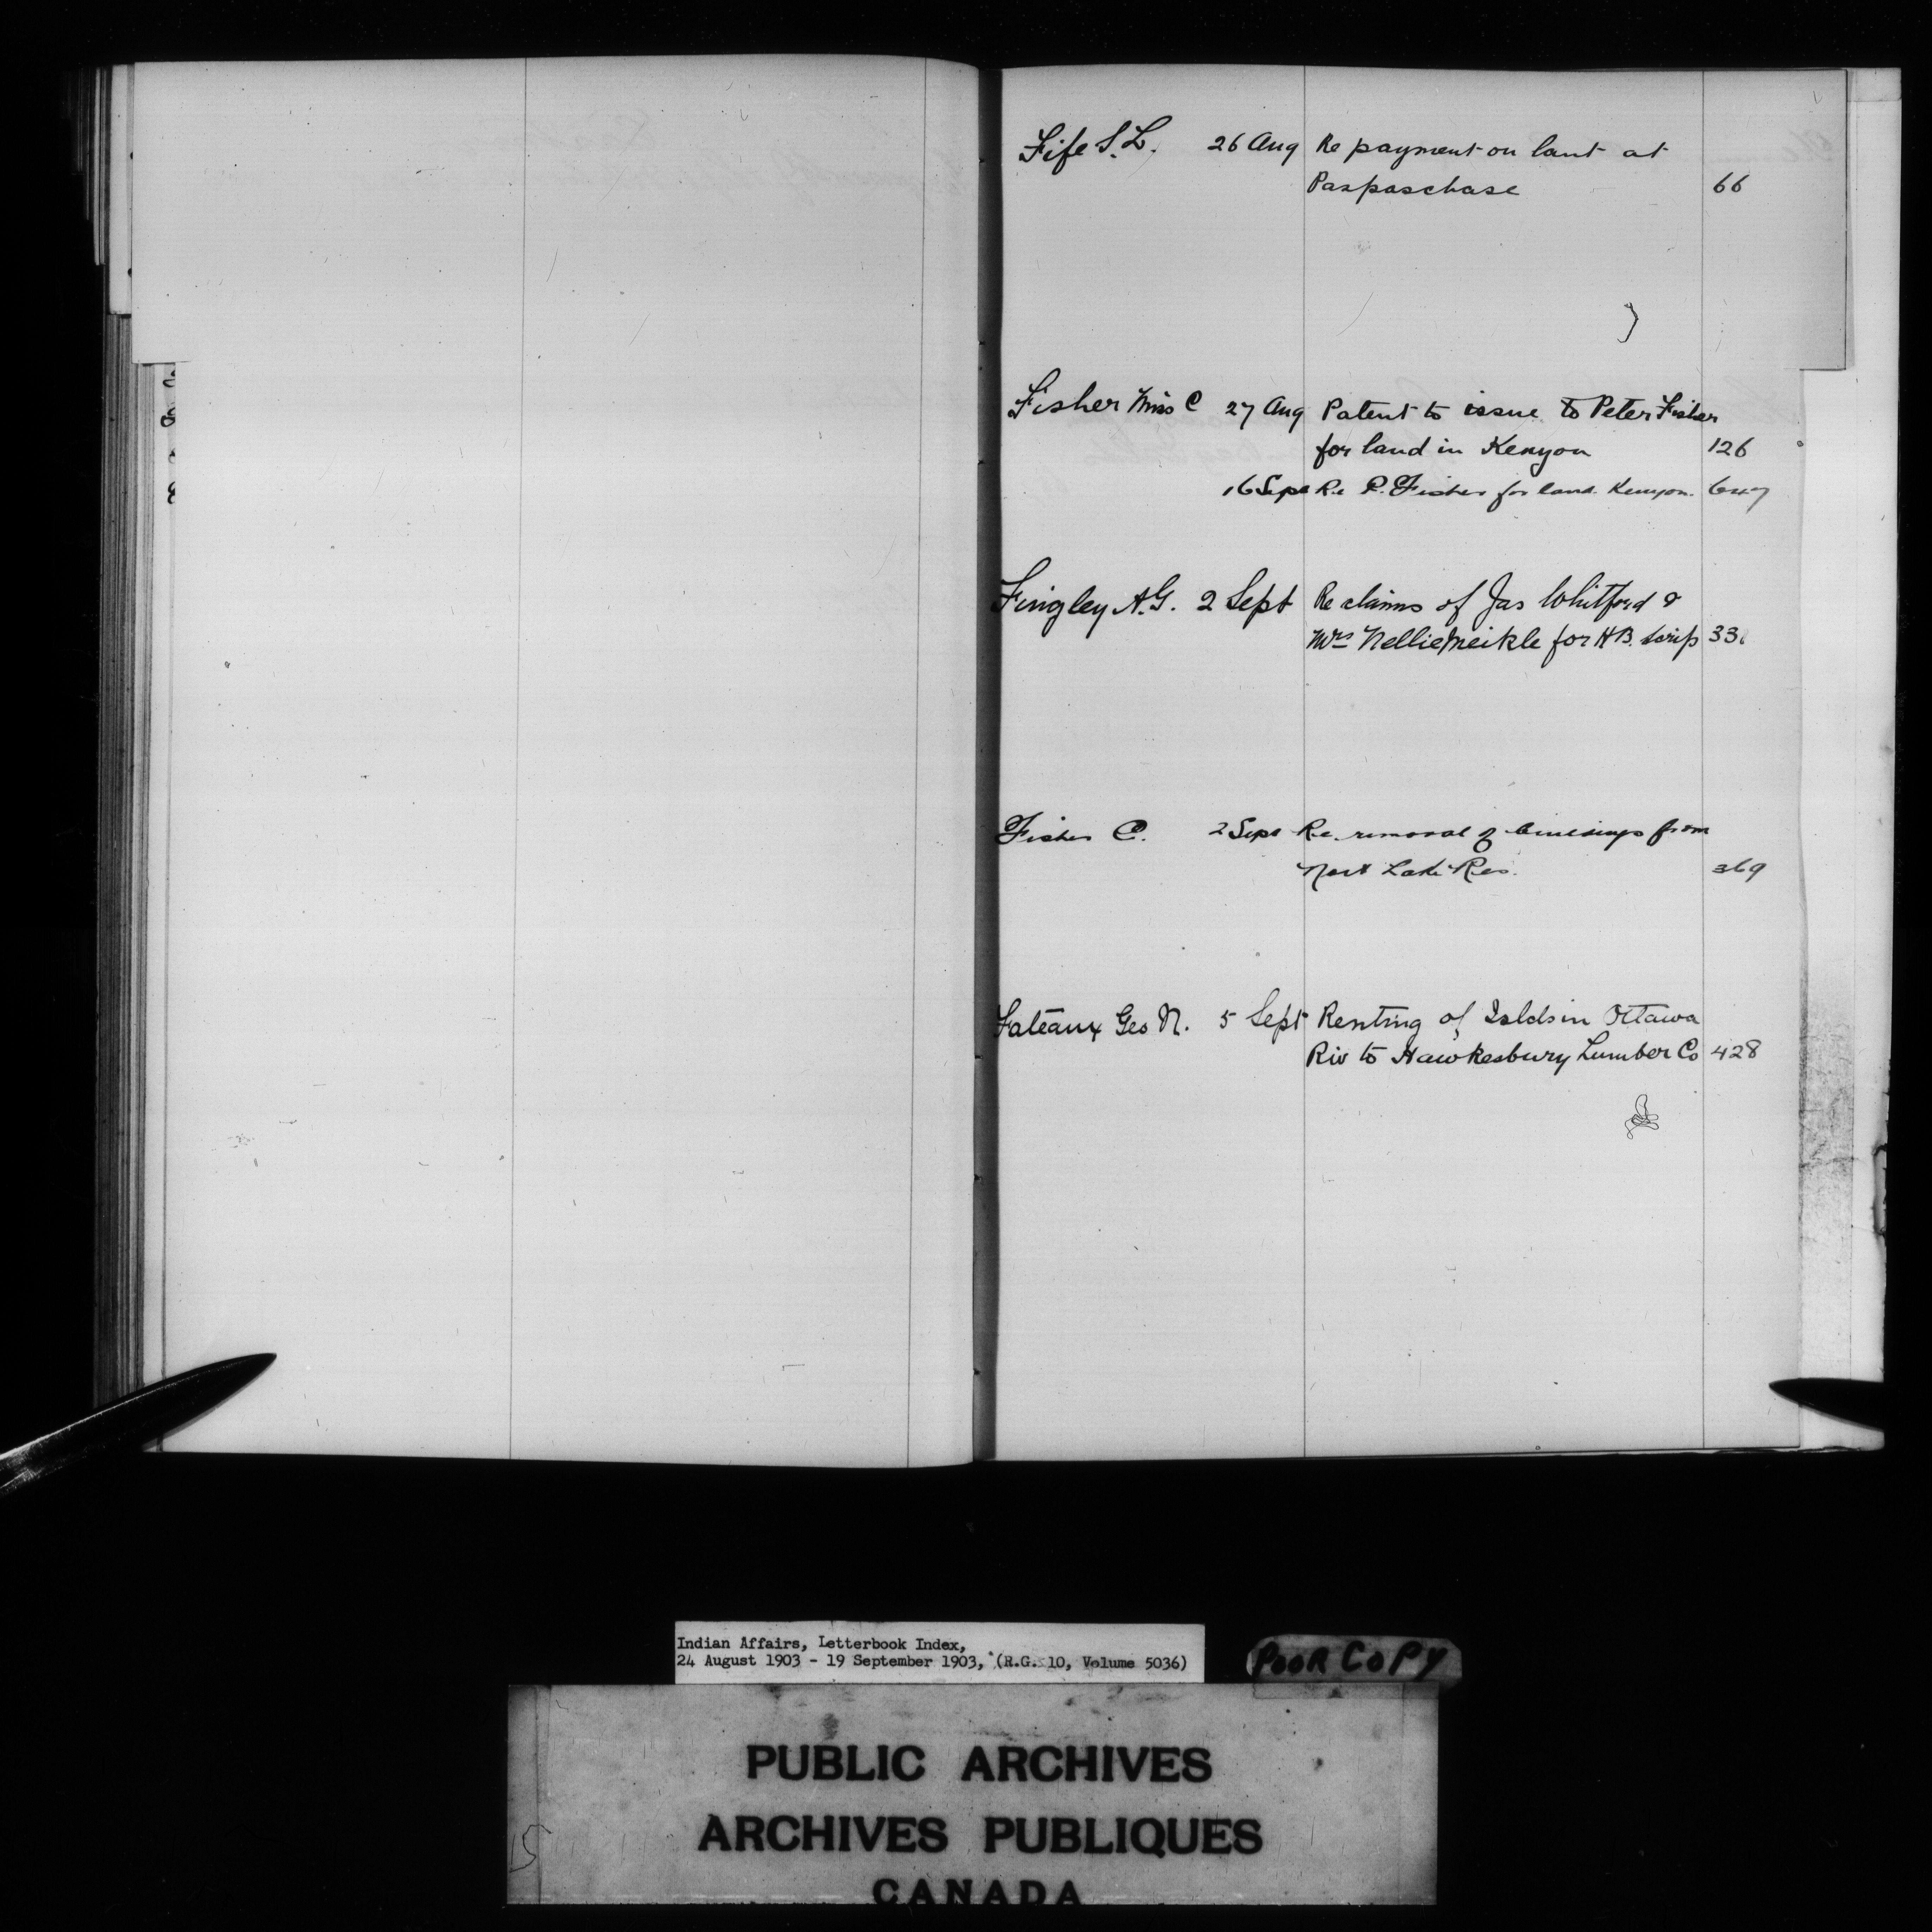 Fife S.L. 26 Aug Re payment on lant at
Paspaschase 66
Fisher Miss C 27 Aug Patent to issue to Peter Fisher
for land in Kenyon 126
16 Sept Re P. Fisher for land Kenyon. 647
Fingley A.G. 2 Sept Re claims of Jas Whitford &
Mrs Nellie Meikle for HB. scrip 33
Fisher C. 2 Sept Re removal of buildings from
Lake Res. 369
Fateaux Geo N. 5 Sept Renting of Islds in Ottawa
Riv to Hawkesbury Lumber Co 428
Indian Affairs, Letterbook Index,
24 August 1903 - 19 September 1903, (R.G. 10, Volume 5036)
POOR COPY
PUBLIC ARCHIVES
ARCHIVES PUBLIQUES
CANADA